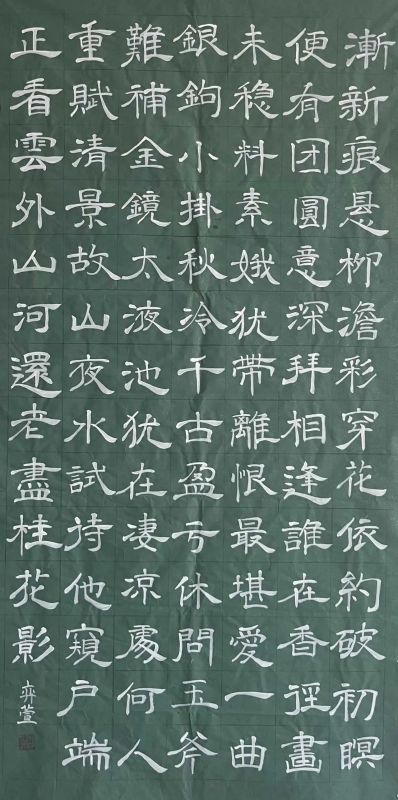 漸新痕悬柳澹彩穿花依約破初暝
便有团圓意深拜相逢誰在香徑畫
未稳料素娥犹帶離恨最堪愛一曲
銀鉤小掛秋冷千古盈亏休問玉斧
難補金鏡太液池犹在凄凉處何人
重賦清景故山夜水試待他窺户端
正看雲外山河還老盡桂花影
弈萱